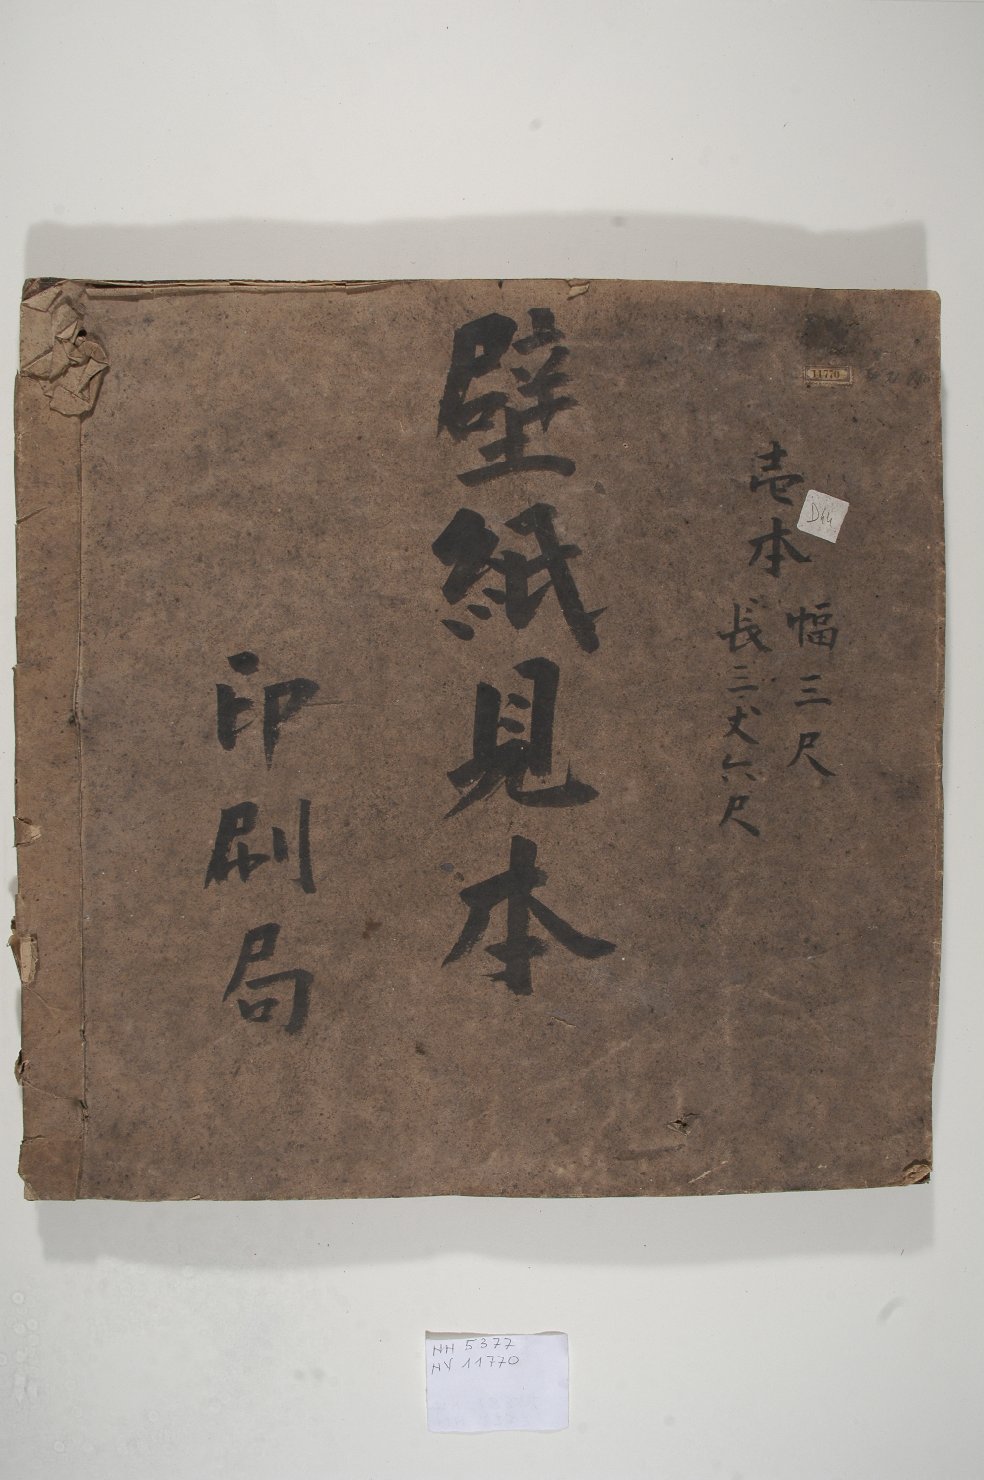 壱本
幅三尺
長三丈六尺
壁紙見本
印刷局
11770
D44
NH 5377
NV 11770